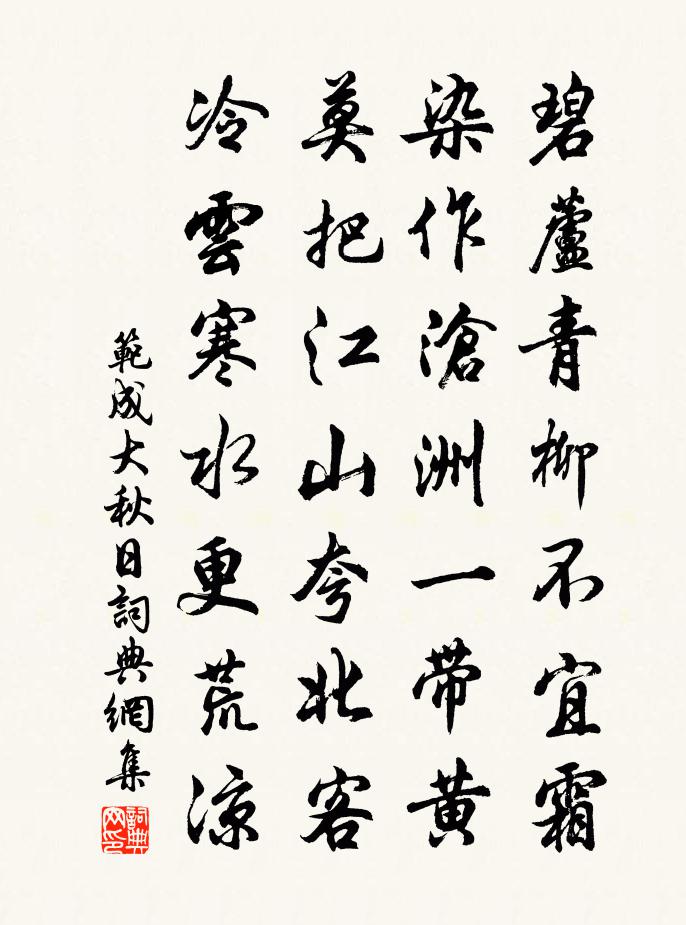 碧蘆青柳不宜霜
染作滄洲一带黄
莫把江山夸北客
冷雲寒水更荒涼
範成大秋日詞典網集
詞典网印